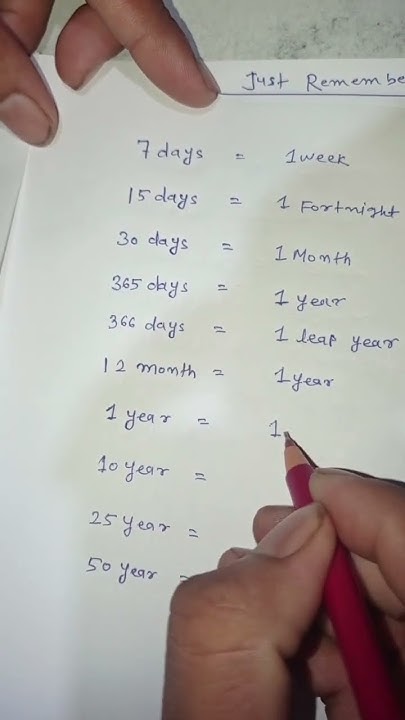 Just Remembe
7 days = 1 week
15 days = 1 Fortnight
30 days = 1 Month
365 days = 1 year
366 days = 1 leap year
12 month = 1 year
1 year = 1
10 year =
25 year =
50 year =